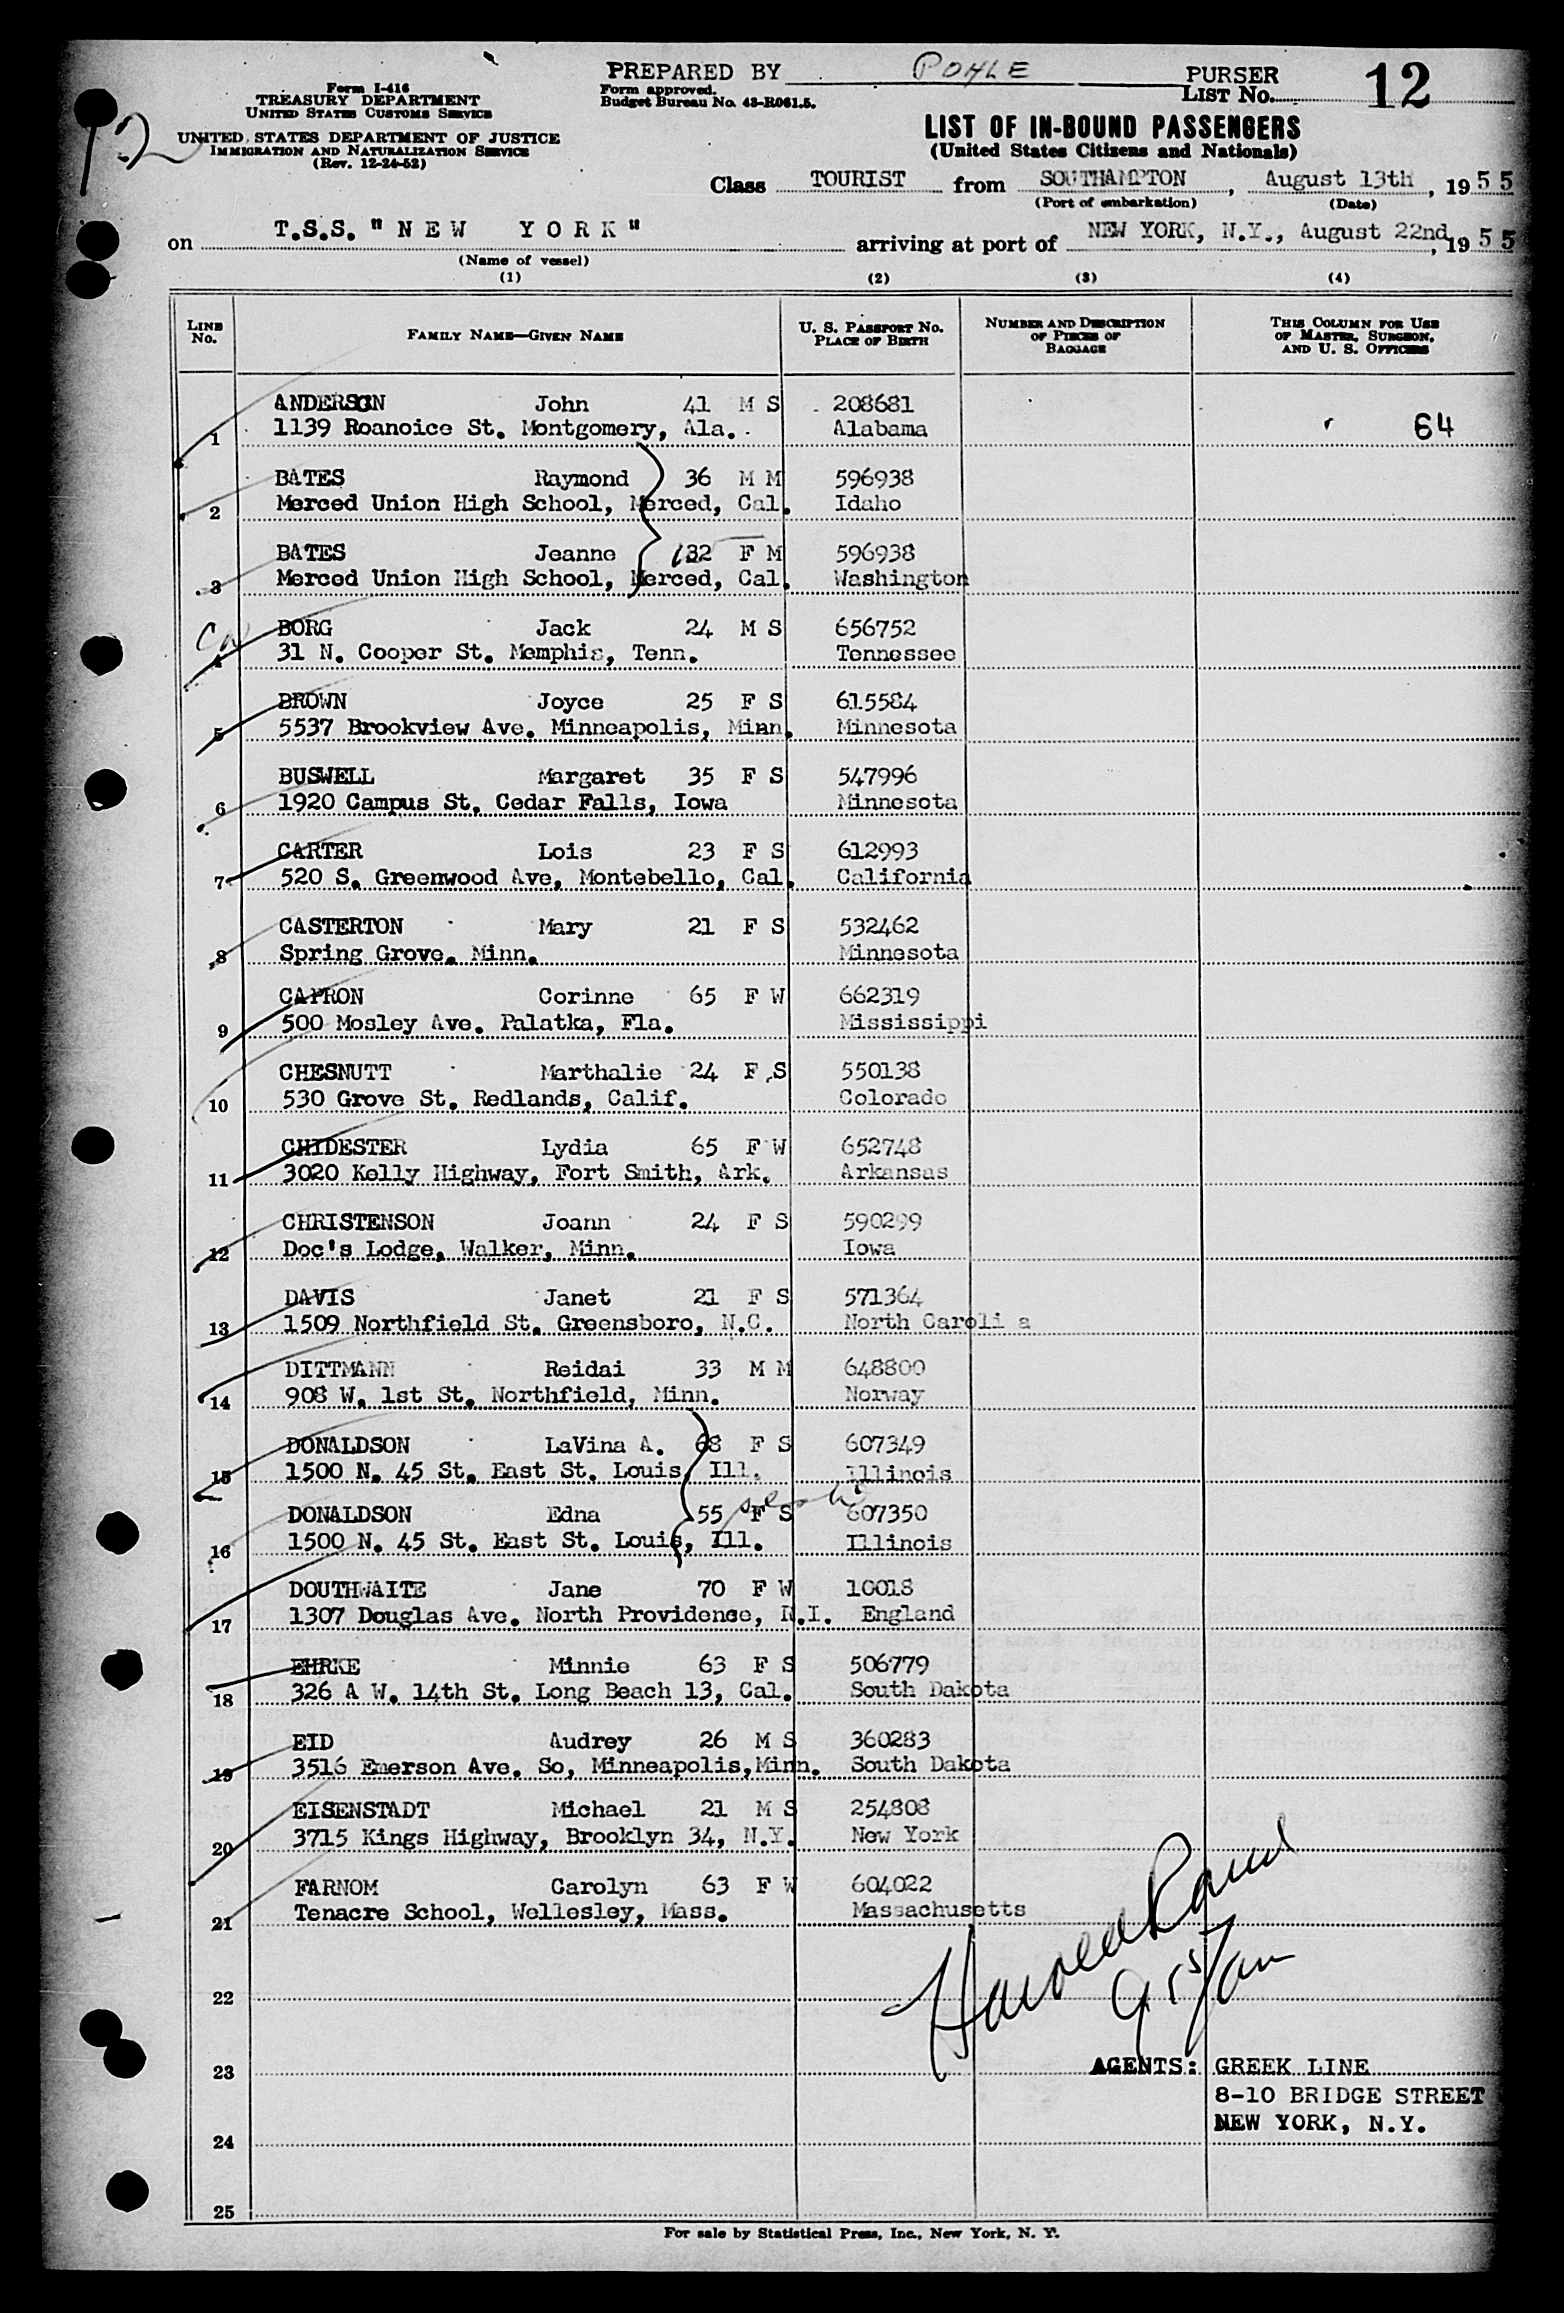 PREPARED BY POHLE PURSER
Form I-416
TREASURY DEPARTMENT
UNITED STATES CUSTOMS SERVICE
UNITED STATES DEPARTMENT OF JUSTICE
IMMIGRATION AND NATURALIZATION SERVICE
(Rev. 12-24-52)
Form approved.
Budget Bureau No. 43-R061.5.
LIST No. 12
LIST OF IN-BOUND PASSENGERS
(United States Citizens and Nationals)
Class TOURIST from SOUTHAMPTON, August 13th, 1955
(Port of embarkation) (Date)
on T.S.S. "NEW YORK" arriving at port of NEW YORK, N.Y., August 22nd, 1955
(Name of vessel)
(1) (2) (3) (4)
LINE No. FAMILY NAME—GIVEN NAME U. S. PASSPORT No. PLACE OF BIRTH NUMBER AND DESCRIPTION OF PIECES OF BAGGAGE THIS COLUMN FOR USE OF MASTER, SURGEON, AND U. S. OFFICERS
ANDERSON John 41 M S 208681
1 1139 Roanoice St. Montgomery, Ala. Alabama 64
BATES Raymond 36 M M 596938
2 Merced Union High School, Merced, Cal. Idaho
BATES Jeanne 32 F M 596938
3 Merced Union High School, Merced, Cal. Washington
BORG Jack 24 M S 656752
4 31 N. Cooper St. Memphis, Tenn. Tennessee
BROWN Joyce 25 F S 615584
5 5537 Brookview Ave. Minneapolis, Minn. Minnesota
BUSWELL Margaret 35 F S 547996
6 1920 Campus St. Cedar Falls, Iowa Minnesota
CARTER Lois 23 F S 612993
7 520 S. Greenwood Ave, Montebello, Cal. California
CASTERTON Mary 21 F S 532462
8 Spring Grove. Minn. Minnesota
CAPRON Corinne 65 F W 662319
9 500 Mosley Ave. Palatka, Fla. Mississippi
CHESNUTT Marthalie 24 F S 550138
10 530 Grove St. Redlands, Calif. Colorado
CHIDESTER Lydia 65 F W 652748
11 3020 Kelly Highway, Fort Smith, Ark. Arkansas
CHRISTENSON Joann 24 F S 590299
12 Doc's Lodge, Walker, Minn. Iowa
DAVIS Janet 21 F S 571364
13 1509 Northfield St. Greensboro, N.C. North Caroli a
DITTMANN Reidai 33 M M 648800
14 908 W. 1st St. Northfield, Minn. Norway
DONALDSON LaVina A. 68 F S 607349
15 1500 N. 45 St. East St. Louis, Ill. Illinois
DONALDSON Edna 55 F S 607350
16 1500 N. 45 St. East St. Louis, Ill. Illinois
DOUTHWAITE Jane 70 F W 10018
17 1307 Douglas Ave. North Providense, R.I. England
EHRKE Minnie 63 F S 506779
18 326 A W. 14th St. Long Beach 13, Cal. South Dakota
EID Audrey 26 M S 360283
19 3516 Emerson Ave. So, Minneapolis, Minn. South Dakota
EISENSTADT Michael 21 M S 254808
20 3715 Kings Highway, Brooklyn 34, N.Y. New York
FARNOM Carolyn 63 F W 604022
21 Tenacre School, Wellesley, Mass. Massachusetts
22
23 AGENTS: GREEK LINE
8-10 BRIDGE STREET
NEW YORK, N.Y.
24
25
For sale by Statistical Press, Inc., New York, N. Y.